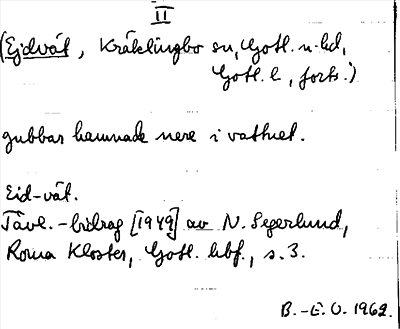 II
(Ejdvät, Kräklingbo sn, Gotl. n. hd,
Gotl. l, forts.)
gubbar hamnade nere i vattnet.
Eid-vät.
Tävl.-bidrag [1949] av N. Segerlund,
Roma Kloster, Gotl. hbf., s. 3.
B.-E. O. 1962.